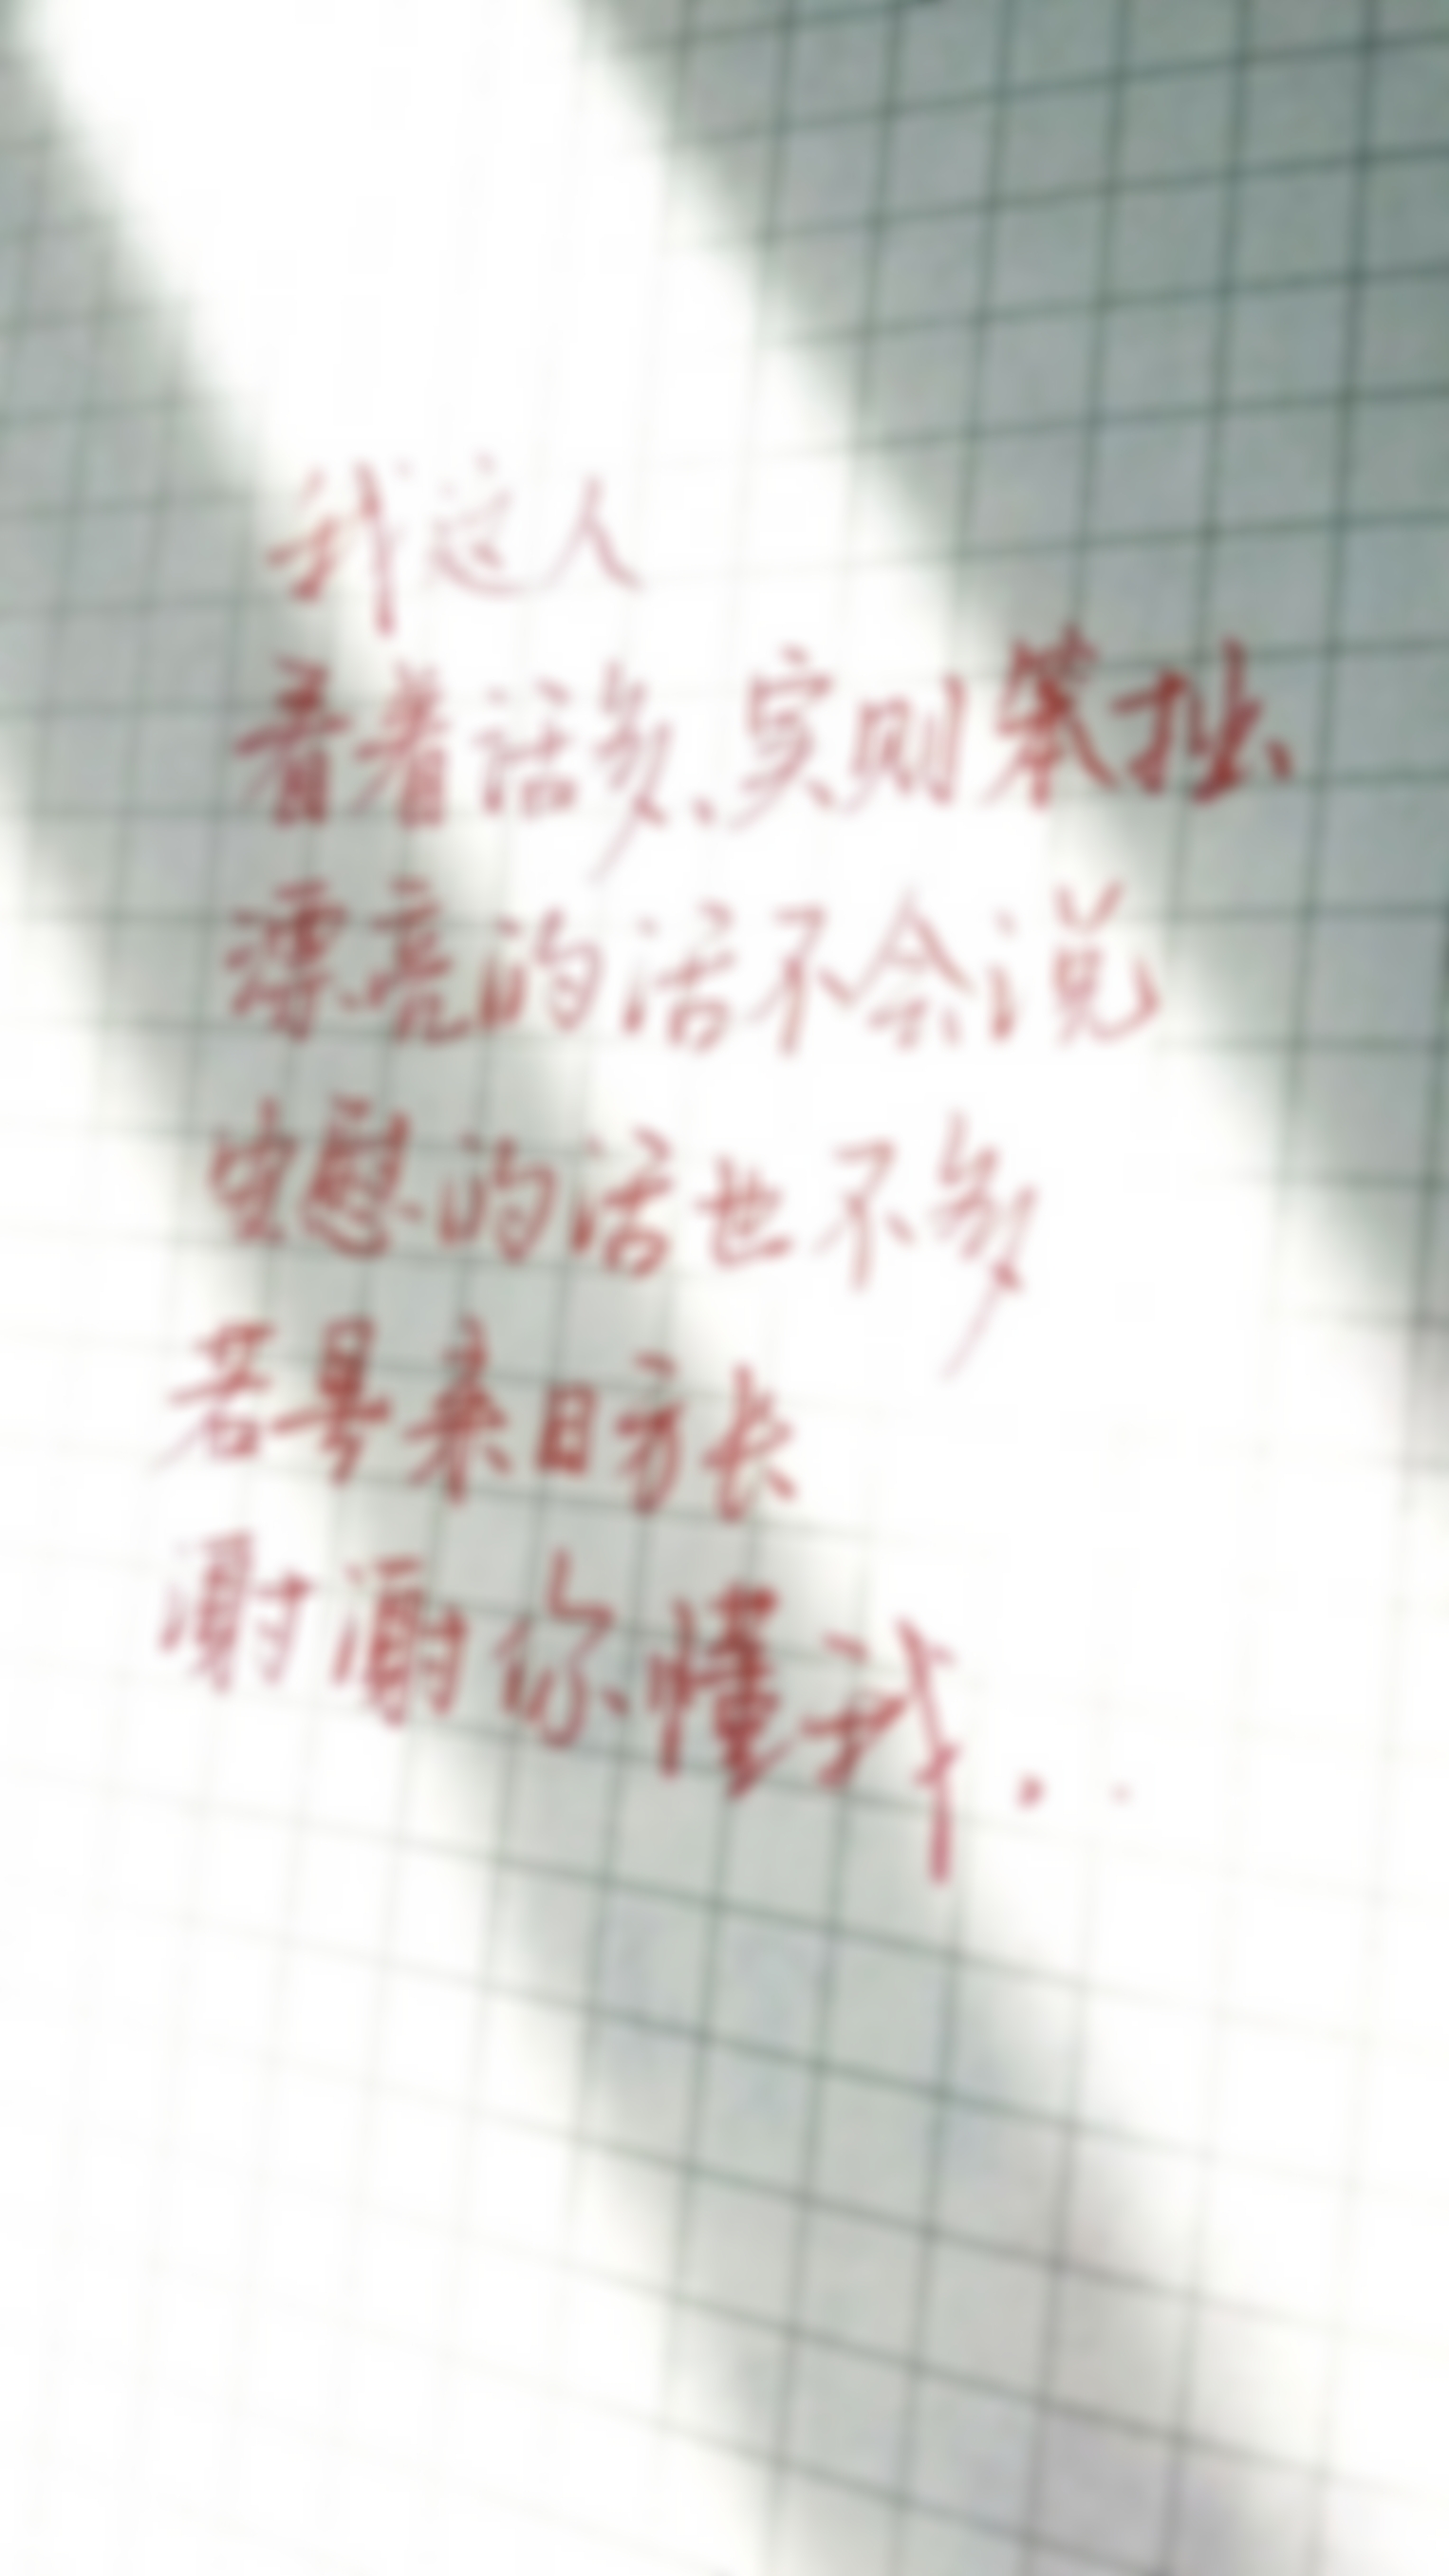 我这人
看着话多、实则笨拙、
漂亮的话不会说
安慰的话也不多
若是来日方长
谢谢你懂我..